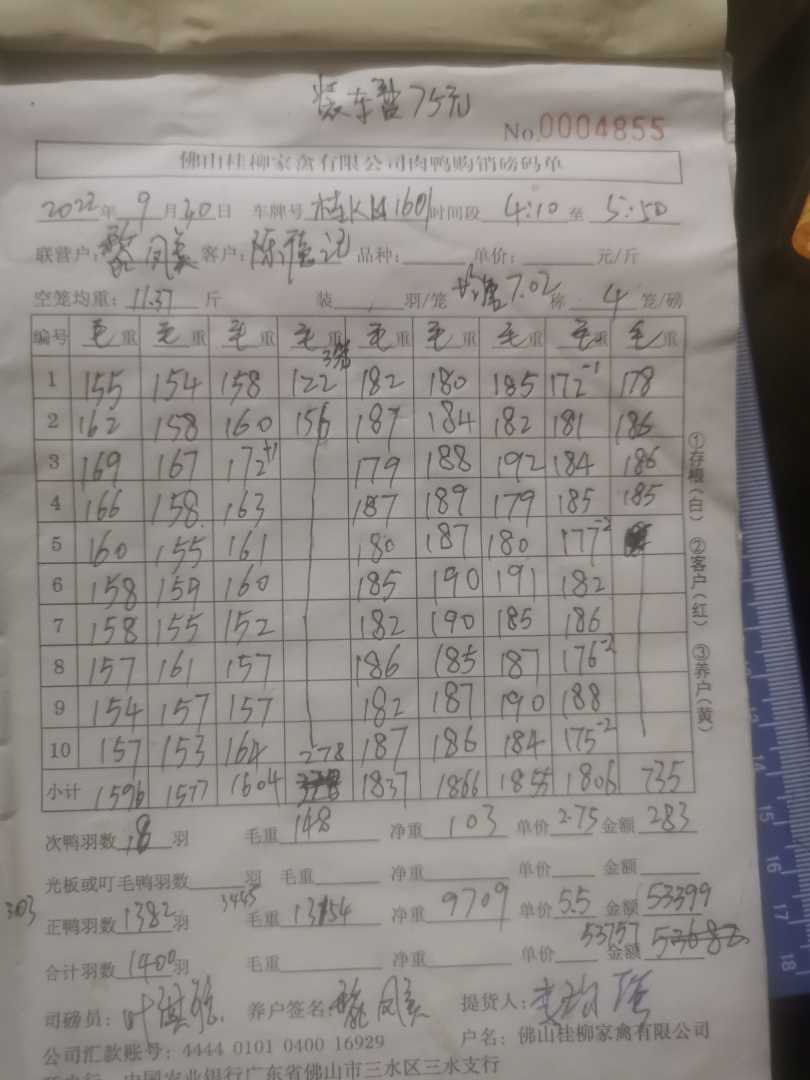 装车费75元
No.0004855
佛山桂柳家禽有限公司肉鸭购销磅码单
2022年 9月30日 车牌号 桂K 1601 时间段 4:10 至 5:50
联营户: 凤美 客户: 陈德记 品种: 单价: 元/斤
空笼均重: 11.37 斤 装 羽/笼 7.02 称 4 笼/磅
编号 毛重 毛重 毛重 毛重 毛重 毛重 毛重 毛重 毛重
1 155 154 158 122 3笼 182 180 185 172-1 178
2 162 158 160 156 187 184 182 181 186
3 169 167 172+1 179 188 192 184 186
4 166 158 163 187 189 179 185 185
5 160 155 161 180 187 180 177-2
6 158 159 160 185 190 191 182
7 158 155 152 182 190 185 186
8 157 161 157 186 185 187 176-2
9 154 157 157 182 187 190 188
10 157 153 164 187 186 184 175-2
小计 1596 1577 1604 278 1837 1866 1855 1806 735
次鸭羽数 18 羽 毛重 148 净重 103 单价 2.75 金额 283
光板或叮毛鸭羽数 羽 毛重 净重 单价 金额
303 正鸭羽数 1382 羽 3445 毛重 13154 净重 9709 单价 5.5 金额 53399
合计羽数 1400 羽 毛重 净重 单价 53757 金额 53682
司磅员: 叶 养户签名: 凤美 提货人:
公司汇款账号: 4444 0101 0400 16929 户名: 佛山桂柳家禽有限公司
中国农业银行广东省佛山市三水区三水支行
①存根(白) ②客户(红) ③养户(黄)
13
14
15
16
17
18